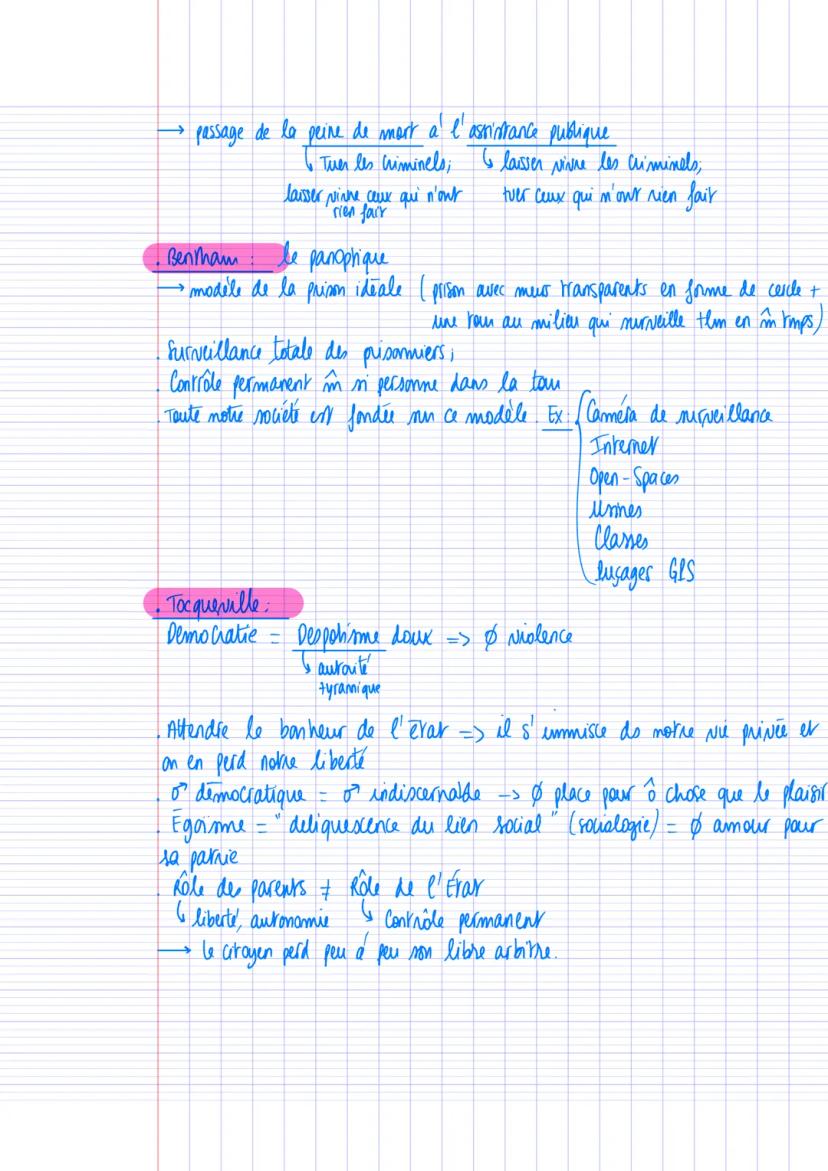 → passage de la peine de mort à l'assistance publique
↳ Tuer les criminels; ↳ laisser vivre les criminels;
laisser vivre ceux qui n'ont rien fait tuer ceux qui n'ont rien fait
. Bentham : le panoptique
→ modèle de la prison idéale ( prison avec murs transparents en forme de cercle +
une tour au milieu qui surveille tlm en m̂ tmps)
. Surveillance totale des prisonniers ;
. Contrôle permanent m̂ si personne dans la tour
. Toute notre société est fondée sur ce modèle. Ex: Caméra de surveillance
Internet
Open-Spaces
Usines
Classes
Puçages GPS
. Tocqueville :
Démocratie = Despotisme doux => ∅ violence
↳ autorité
tyrannique
. Attendre le bonheur de l'état => il s'immisce ds notre vie privée et
on en perd notre liberté
. ♂ démocratique = ♂ indiscernable -> ∅ place pour ô chose que le plaisir
. Égoïsme = "déliquescence du lien social" (sociologie) = ∅ amour pour
sa patrie
. Rôle des parents ≠ Rôle de l'État
↳ liberté, autonomie ↳ Contrôle permanent
→ le citoyen perd peu à peu son libre arbitre.